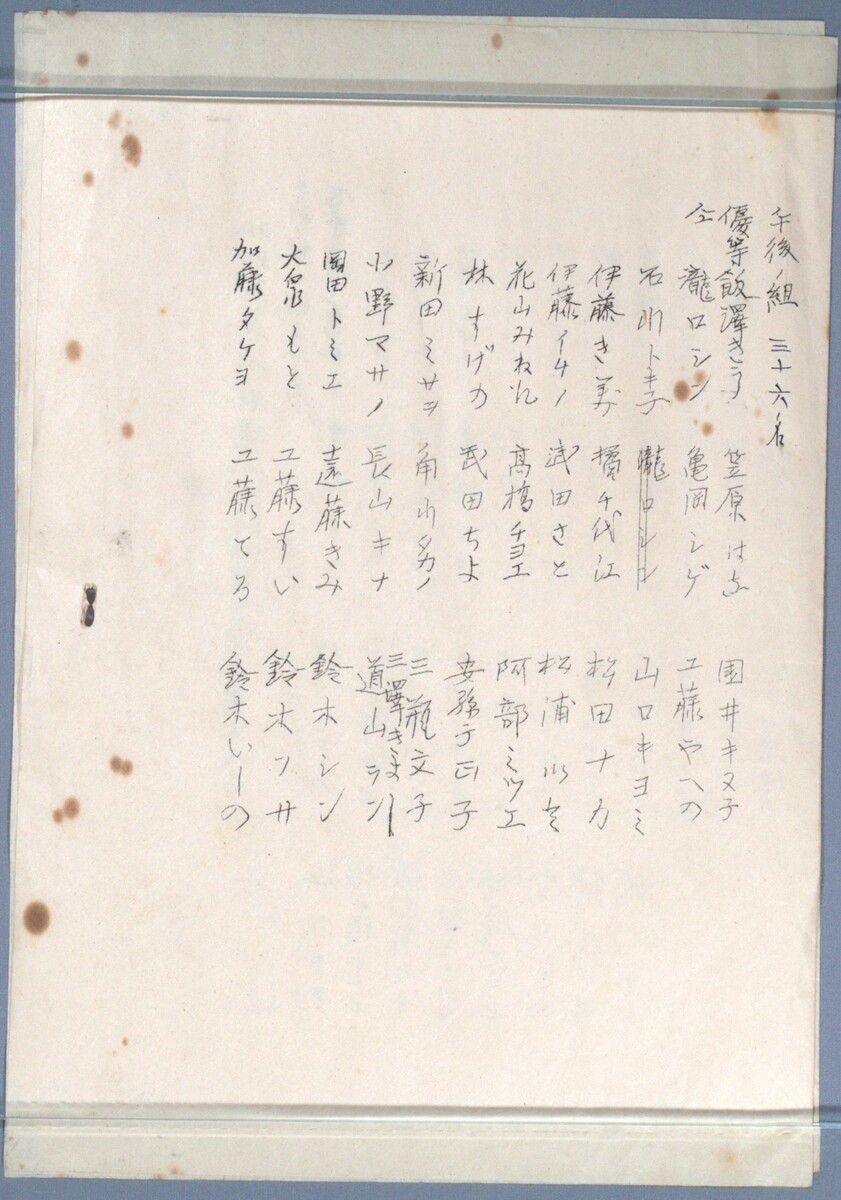 午後ノ組 三十六名
優等 飯澤きう
仝 瀧口シン
石川トキ子
伊藤き美
伊藤イチノ
花山みねれ
林すげの
新田ミサヲ
小野マサノ
岡田トミエ
大泉もと
加藤タケヨ
笠原はな
亀岡シゲ
瀧口シン
橘千代江
武田さと
高橋チヨエ
武田ちよ
角川タカノ
長山キナ
遠藤きみ
工藤すい
工藤てる
国井キヌ子
工藤やへの
山口キヨミ
松田ナカ
松浦
阿部ミツエ
安孫子正子
三瓶文子
三澤きよ
道山ラン
鈴木シン
鈴木フサ
鈴木いしの